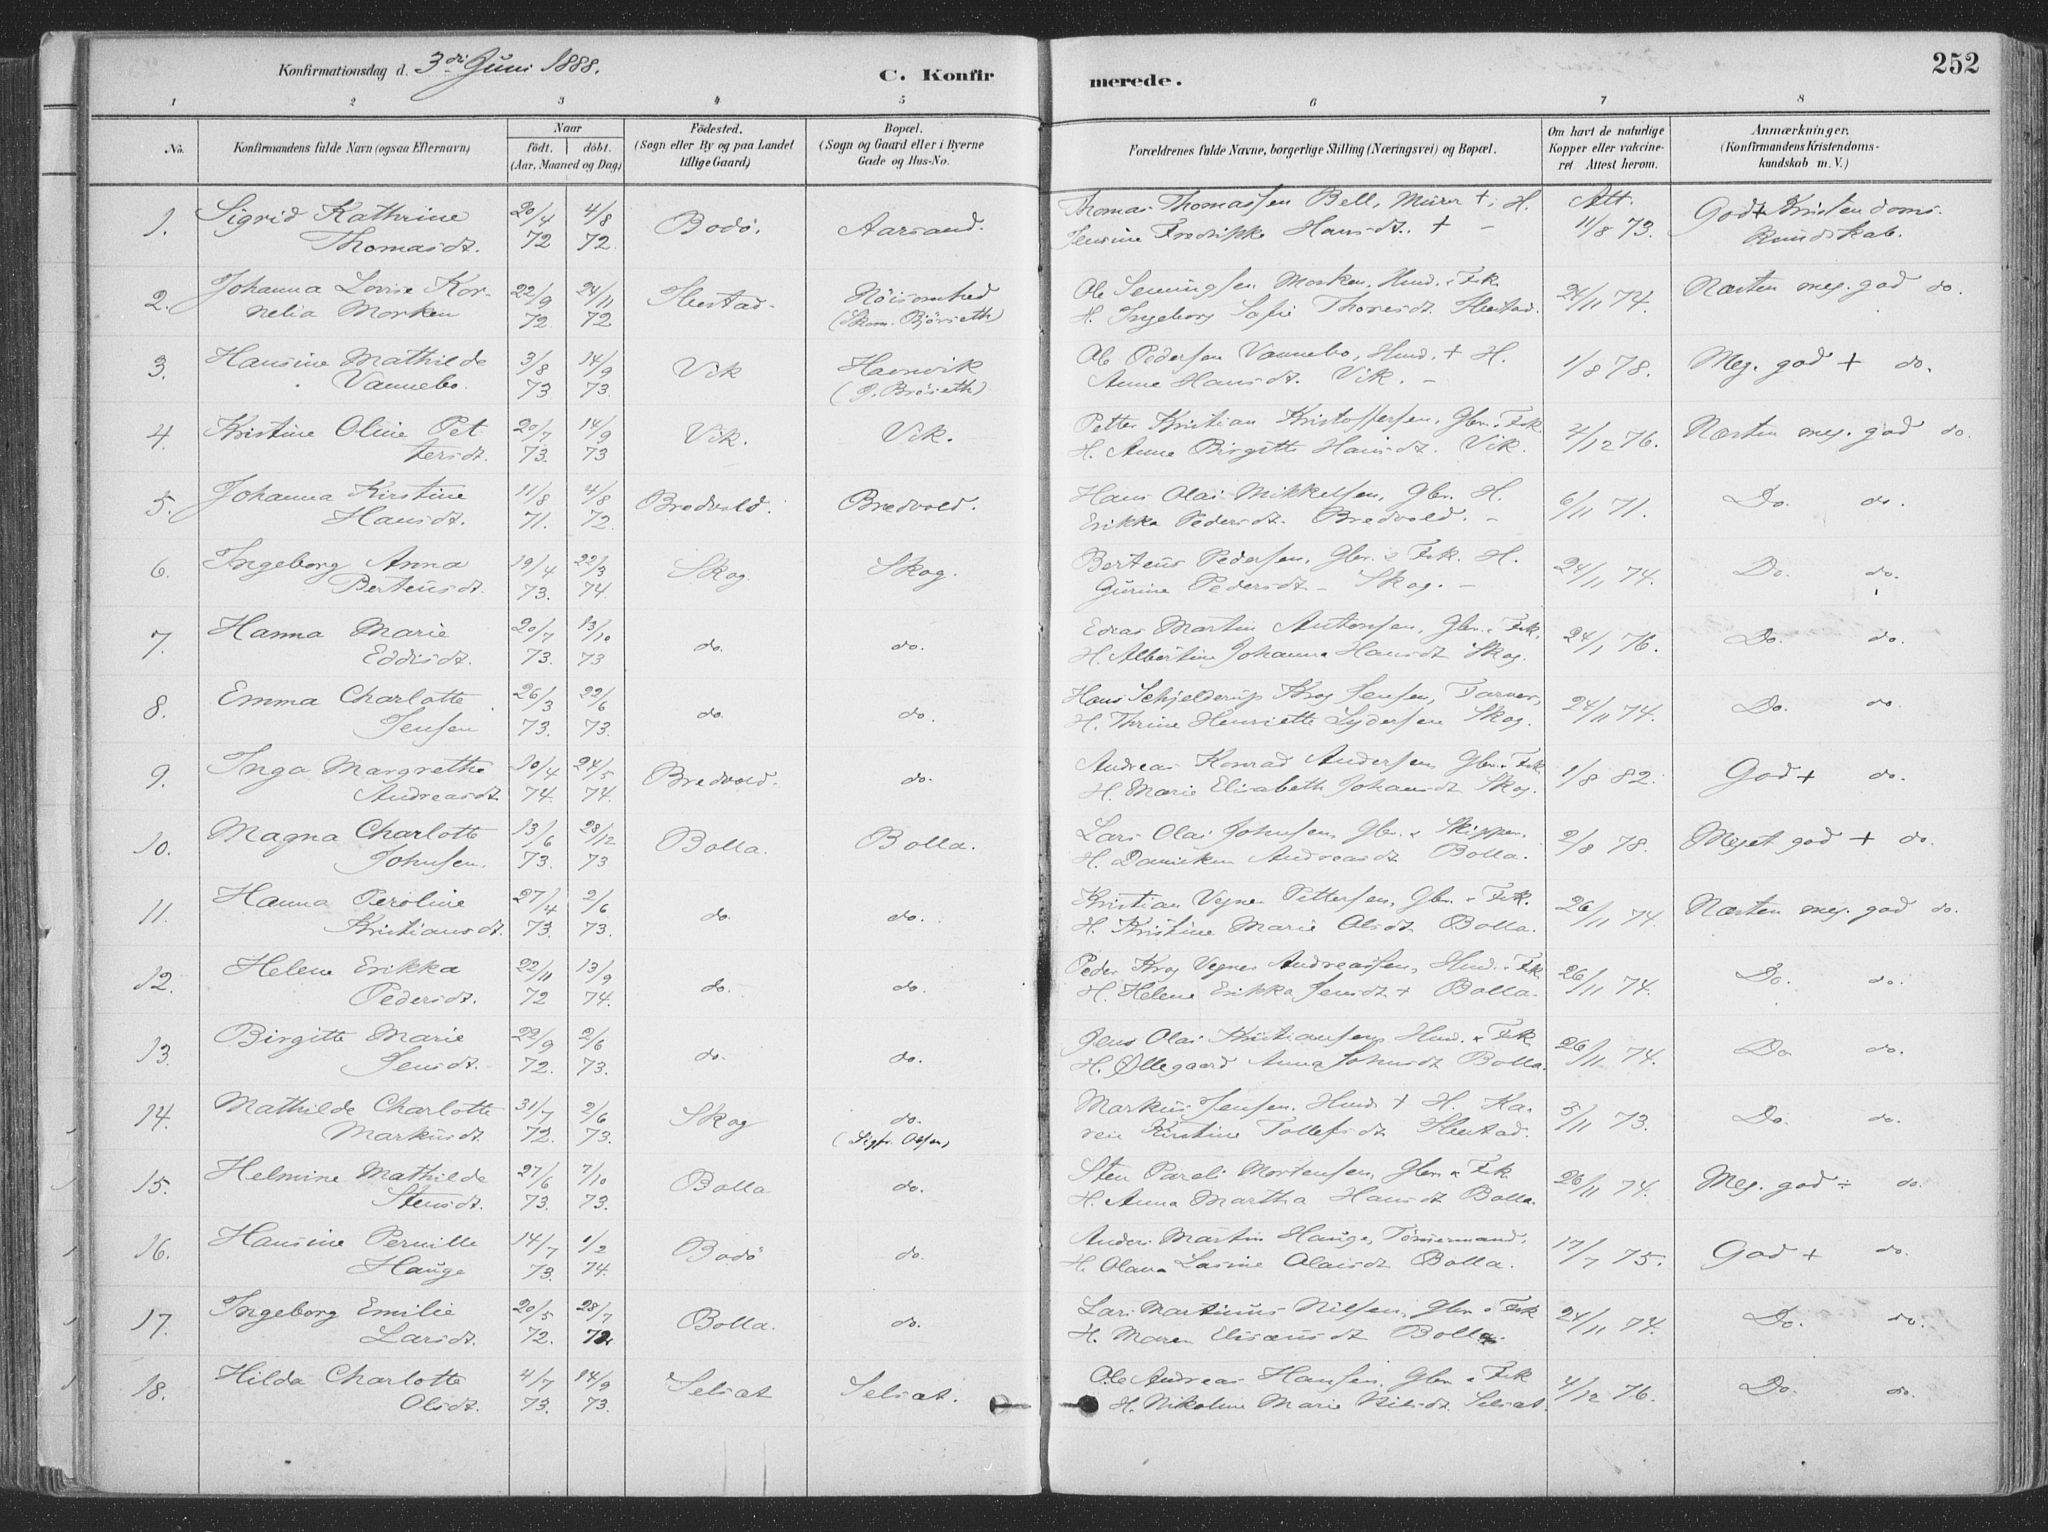 Konfirmationsdag d. 3die Juni 1888.
C. Konfirmerede.
252
1 2 3 4 5 6 7 8
No.
Konfirmandens fulde Navn (ogsaa Efternavn)
Naar
födt. döbt.
(Aar, Maaned og Dag)
Födested.
(Sogn eller By og paa Landet
tillige Gaard)
Bopæl.
(Sogn og Gaard eller i Byerne
Gade og Hus-No.
Forældrenes fulde Navne, borgerlige Stilling (Næringsvei) og Bopæl.
Om havt de naturlige
Kopper eller vakcine-
ret Attest herom.
Anmærkninger.
(Konfirmandens Kristendoms-
kundskab m. V.)
1. Sigrid Kathrine 20/4 4/8 Bodö. Aarsand. Thomas Thomassen Bell, Murer +, H. Att. God + Kristendoms-
Thomasdt. 72 72. Jensine Fredrikke Hansdt. + - 11/8 73. kundskab.
2. Johanna Lovise Kor- 22/9 24/11 Hestad - Nöisomhed Ole Morken, Hmd. & Fsk. 24/11 74. Næsten meg. god do.
nelia Morken 72 72 H. Ingeborg Sofie Thoresdt. Hestad.
3. Hansine Mathilde 3/8 14/9 Vik Havnvik Ole Pedersen Vannebo, Hmd. + H. 1/8 78. Meg. god + do.
Vannebo. 73 73. Anne Hansdt. Vik. -
4. Kristine Oline Pet- 20/7 14/9 Vik. Vik. Petter Kristian Kristoffersen, Gbr. & Fsk. 4/12 76. Næsten meg. god do.
tersdt. 73. 73 H. Anne Birgitte Hansdt. Vik.
5. Johanna Kirstine 11/8 4/8 Bredvold. Bredvold. Hans Olai Mikkelsen, Gbr. H. 6/11 71. Do. do.
Hansdt. 71. 72. Erikka Pedersdt. Bredvold. -
6. Ingeborg Anna 19/4 22/3 Skog Skog. Berteus Pedersen, Gbr. & Fsk. H. 24/11 74. Do. do.
Berteusdt. 73. 74. Gurine Pedersdt - Skog. -
7. Hanna Marie 20/7 13/10 do. do. Edias Martin Antonsen, Gbr. & Fsk. 24/1 76. Do. do.
Eddisdt. 73. 73 H. Albertine Johanna Hansdt Skog.
8. Emma Charlotte 26/3 22/6 do. do. Hans Schjelderup Krog Jensen, 24/11 74. Do. do.
Jensen 73. 73. H. Thrine Henriette Lydersen Skog.
9. Inga Margrethe 10/4 24/5 Bredvold. do. Andreas Konrad Andersen Gbr. & Fsk 1/8 82. God + do.
Andreasdt. 74. 74. H. Marie Elisabeth Johansdt Skog.
10. Magna Charlotte 13/6 28/12 Bolla. Bolla. Lars Olai Johnsen Gbr. & Skipper. 2/8 78. Meget god + do.
Johnsen. 73. 73 H. Daniken Andreasdt Bolla.
11. Hanna Peroline 27/4 2/6 do. do. Kristian Vegner Pettersen, Gbr. & Fsk. 26/11 74. Næsten meg. god do.
Kristiansdt. 73. 73. H. Kristine Marie Olsdt Bolla.
12. Helene Erikka 22/11 13/9 do. do. Peder Krog Vegner Andreassen, Hmd. & Fsk 26/11 74. Do. do.
Pedersdt. 72 74. H. Helene Erikka Jensdt + Bolla.
13. Birgitte Marie 22/9 2/6 do. do. Jens Olai Kristiansen, Hmd. & Fsk 26/11 74. Do. do.
Jensdt. 72. 73. H. Øllegaard Anna Johnsdt Bolla.
14. Mathilde Charlotte 31/7 2/6 Skog do. Markus Jensen. Hmd + H. Ka- 5/11 73. Do. do.
Markusdt. 72. 73. (Sigfr. Olsen) ren Kirstine Tollefsdt Hestad.
15. Helmine Mathilde 27/6 7/10 Bolla do. Sten Pareli Mortensen, Gbr. & Fsk 26/11 74. Meg. god ÷ do.
Stensdt. 73. 73. H. Anna Martha Hansdt Bolla.
16. Hansine Pernille 14/7 1/2 Bodö do. Anders Martin Hauge, Tömmermand. 17/7 75. God + do.
Hauge 73. 74. H. Olava Lasine Olaisdt Bolla.
17. Ingeborg Emilie 20/5 28/7 Bolla. do. Lars Martinus Nilsen, Gbr & Fsk 24/11 74. Do. do.
Larsdt. 72. 72. H. Maren Eliseusdt Bolla.
18. Hilda Charlotte 4/7 14/9 Selsæt Selsæt. Ole Andreas Hansen, Gbr. & Fsk 4/12 76. Do. do.
Olsdt. 73. 73. H. Nikoline Marie Nilsdt. Selsæt.